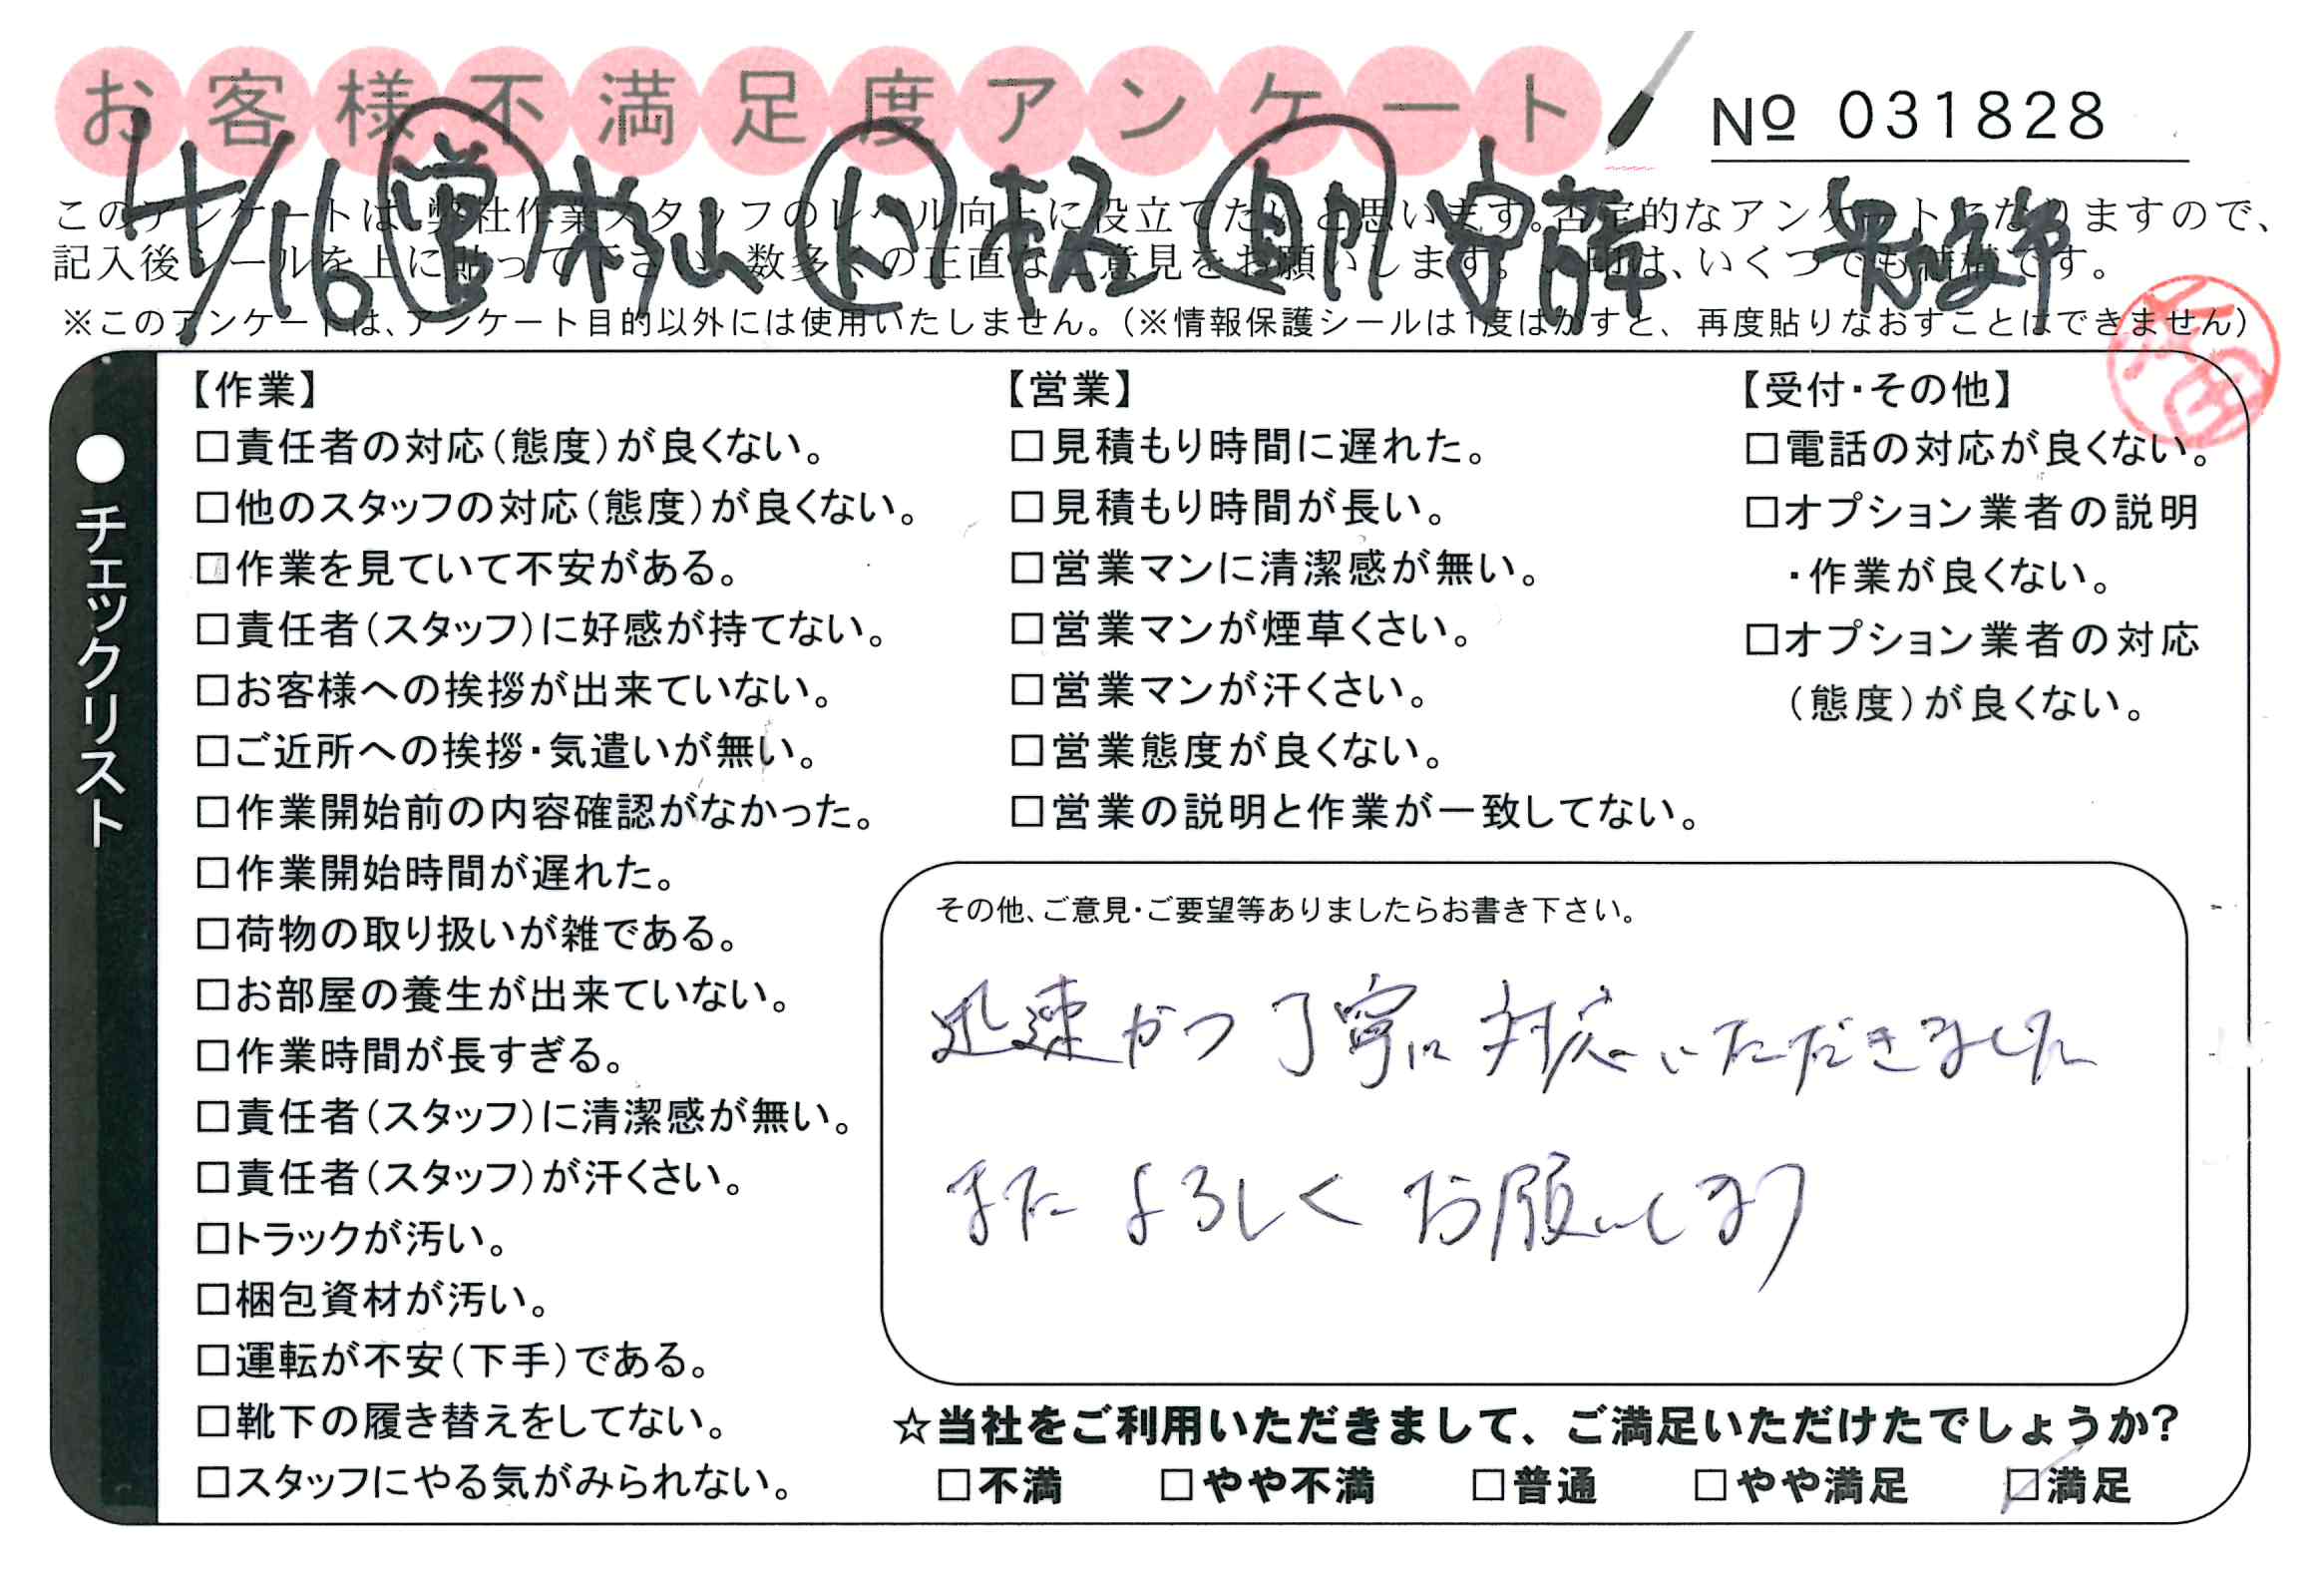 お客様不満足度アンケート
Nº 031828
4/16 営 杉山 ド 軽 助 守
このアンケートは、弊社作業スタッフのレベル向上に役立てたいと思います。否定的なアンケートになりますので、
記入後シールを上に貼って下さい。数多くの正直なご意見をお願いします。
※このアンケートは、アンケート目的以外には使用いたしません。（※情報保護シールは1度はがすと、再度貼りなおすことはできません）
●チェックリスト
【作業】
□責任者の対応（態度）が良くない。
□他のスタッフの対応（態度）が良くない。
□作業を見ていて不安がある。
□責任者（スタッフ）に好感が持てない。
□お客様への挨拶が出来ていない。
□ご近所への挨拶・気遣いが無い。
□作業開始前の内容確認がなかった。
□作業開始時間が遅れた。
□荷物の取り扱いが雑である。
□お部屋の養生が出来ていない。
□作業時間が長すぎる。
□責任者（スタッフ）に清潔感が無い。
□責任者（スタッフ）が汗くさい。
□トラックが汚い。
□梱包資材が汚い。
□運転が不安（下手）である。
□靴下の履き替えをしてない。
□スタッフにやる気がみられない。
【営業】
□見積もり時間に遅れた。
□見積もり時間が長い。
□営業マンに清潔感が無い。
□営業マンが煙草くさい。
□営業マンが汗くさい。
□営業態度が良くない。
□営業の説明と作業が一致してない。
【受付・その他】
□電話の対応が良くない。
□オプション業者の説明
・作業が良くない。
□オプション業者の対応
（態度）が良くない。
その他、ご意見・ご要望等ありましたらお書き下さい。
迅速かつ丁寧に対応いただきました
またよろしくお願いします
☆当社をご利用いただきまして、ご満足いただけたでしょうか?
□不満 □やや不満 □普通 □やや満足 ☑満足